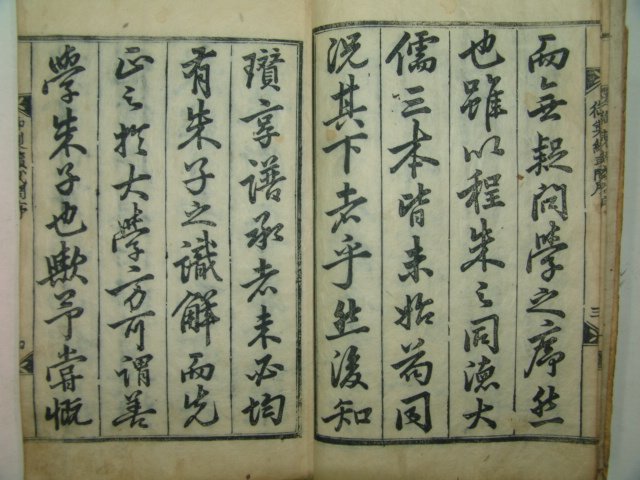 而無疑問學之序然
也雖以程朱之同德大
儒三本皆未始苟同
況其下者乎然後知
三
享譜承者未必均
有朱子之識解而先
正之於大學方可謂善
學朱子也歟予嘗慨
四